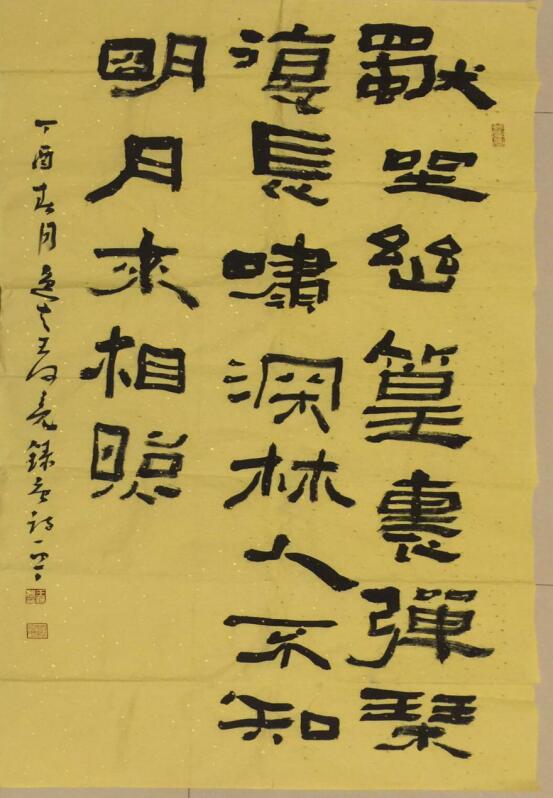 獨坐幽篁裏彈琴
復長嘯深林人不知
明月來相照
丁酉春月亮錄詩一